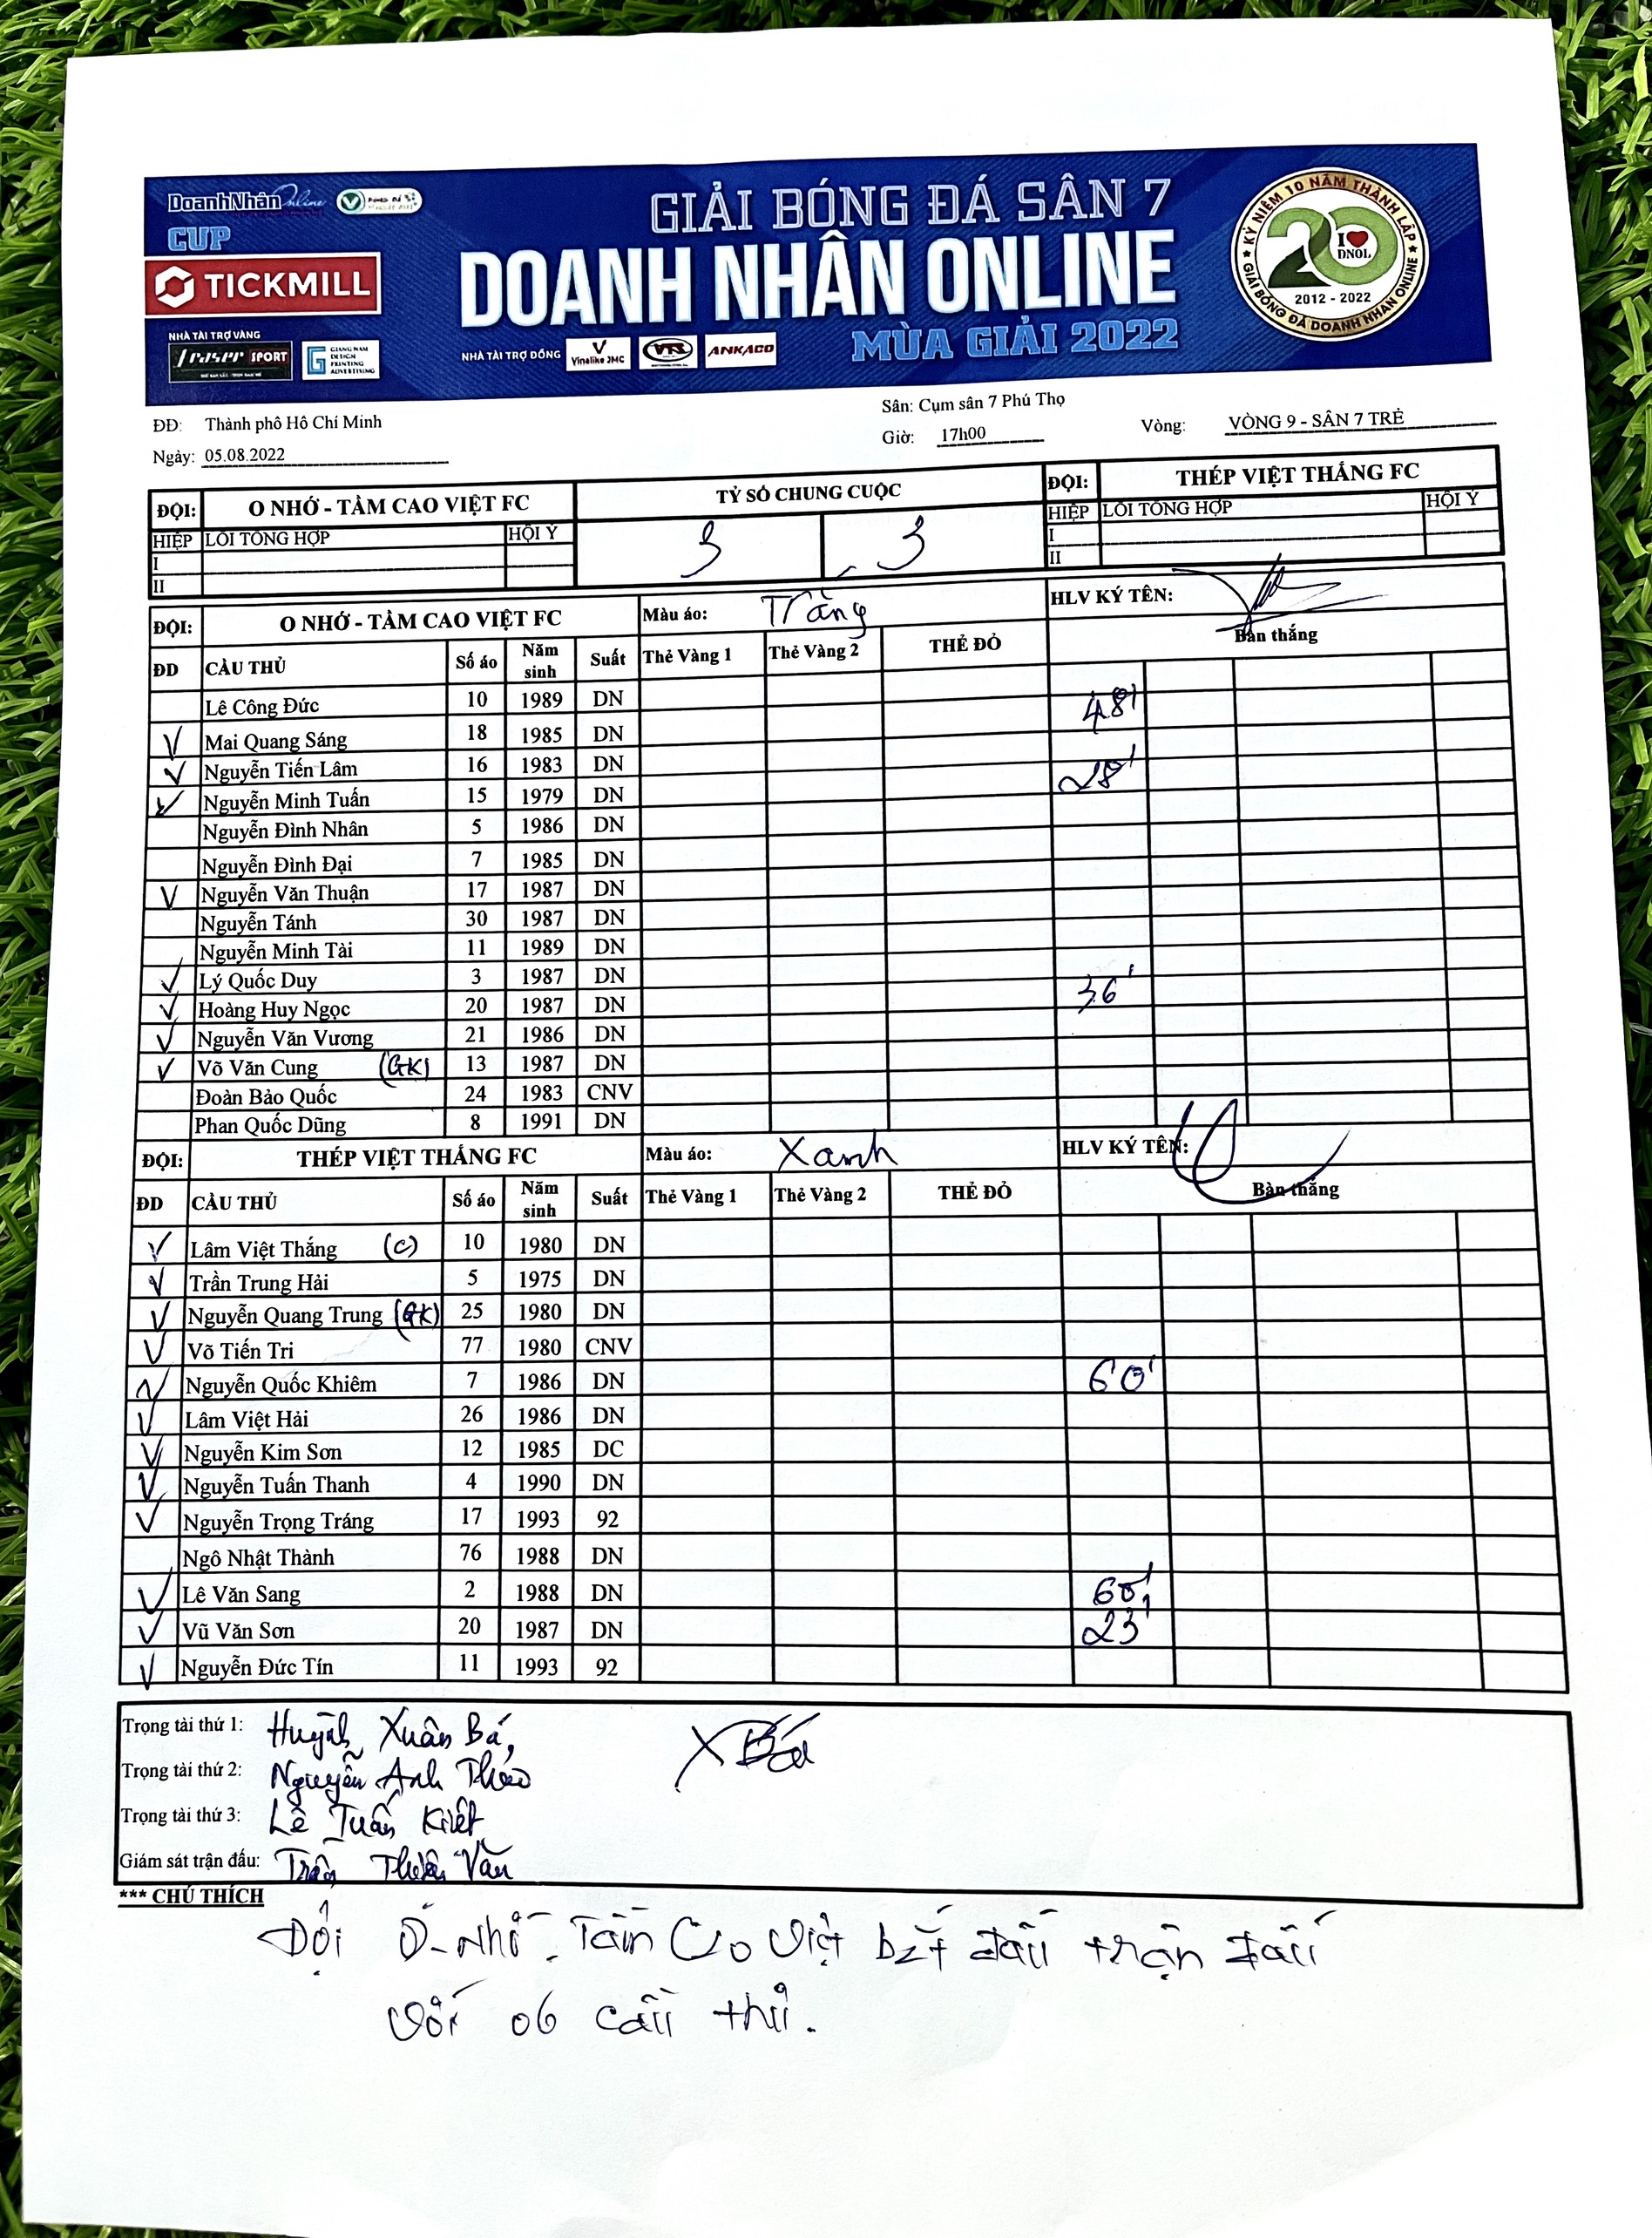 DoanhNhân Online
CUP
TICKMILL
NHÀ TÀI TRỢ VÀNG
SPORT
GIANG NAM
DESIGN
PRINTING
ADVERTISING
GIẢI BÓNG ĐÁ SÂN 7
DOANH NHÂN ONLINE
MÙA GIẢI 2022
NHÀ TÀI TRỢ ĐỒNG
Vinalike JMC
ANKACO
KỶ NIỆM 10 NĂM THÀNH LẬP
I
DNOL
2012 - 2022
GIẢI BÓNG ĐÁ DOANH NHÂN ONLINE
ĐĐ: Thành phố Hồ Chí Minh Sân: Cụm sân 7 Phú Thọ
Ngày: 05.08.2022 Giờ: 17h00 Vòng: VÒNG 9 - SÂN 7 TRẺ
ĐỘI: O NHỚ - TẦM CAO VIỆT FC TỶ SỐ CHUNG CUỘC ĐỘI: THÉP VIỆT THẮNG FC
HIỆP LỖI TỔNG HỢP HỘI Ý 3 3 HIỆP LỖI TỔNG HỢP HỘI Ý
I I
II II
ĐỘI: O NHỚ - TẦM CAO VIỆT FC Màu áo: Trắng HLV KÝ TÊN:
ĐD CẦU THỦ Số áo Năm sinh Suất Thẻ Vàng 1 Thẻ Vàng 2 THẺ ĐỎ Bàn thắng
Lê Công Đức 10 1989 DN
V Mai Quang Sáng 18 1985 DN 48'
V Nguyễn Tiến Lâm 16 1983 DN
V Nguyễn Minh Tuấn 15 1979 DN 28'
Nguyễn Đình Nhân 5 1986 DN
Nguyễn Đình Đại 7 1985 DN
V Nguyễn Văn Thuận 17 1987 DN
Nguyễn Tánh 30 1987 DN
Nguyễn Minh Tài 11 1989 DN
V Lý Quốc Duy 3 1987 DN
V Hoàng Huy Ngọc 20 1987 DN 36'
V Nguyễn Văn Vương 21 1986 DN
V Võ Văn Cung (GK) 13 1987 DN
Đoàn Bảo Quốc 24 1983 CNV
Phan Quốc Dũng 8 1991 DN
ĐỘI: THÉP VIỆT THẮNG FC Màu áo: Xanh HLV KÝ TÊN:
ĐD CẦU THỦ Số áo Năm sinh Suất Thẻ Vàng 1 Thẻ Vàng 2 THẺ ĐỎ Bàn thắng
V Lâm Việt Thắng (C) 10 1980 DN
V Trần Trung Hải 5 1975 DN
V Nguyễn Quang Trung (GK) 25 1980 DN
V Võ Tiến Tri 77 1980 CNV
V Nguyễn Quốc Khiêm 7 1986 DN 60'
V Lâm Việt Hải 26 1986 DN
V Nguyễn Kim Sơn 12 1985 DC
V Nguyễn Tuấn Thanh 4 1990 DN
V Nguyễn Trọng Tráng 17 1993 92
Ngô Nhật Thành 76 1988 DN
V Lê Văn Sang 2 1988 DN 60'
V Vũ Văn Sơn 20 1987 DN 23'
V Nguyễn Đức Tín 11 1993 92
Trọng tài thứ 1: Huỳnh Xuân Bá
Trọng tài thứ 2: Nguyễn Anh
Trọng tài thứ 3: Lê Tuấn Kiệt
Giám sát trận đấu: Trần Văn
*** CHÚ THÍCH
Đội Ơ-Nhớ-Tầm Cao Việt bắt đầu trận đấu
với 06 cầu thủ.